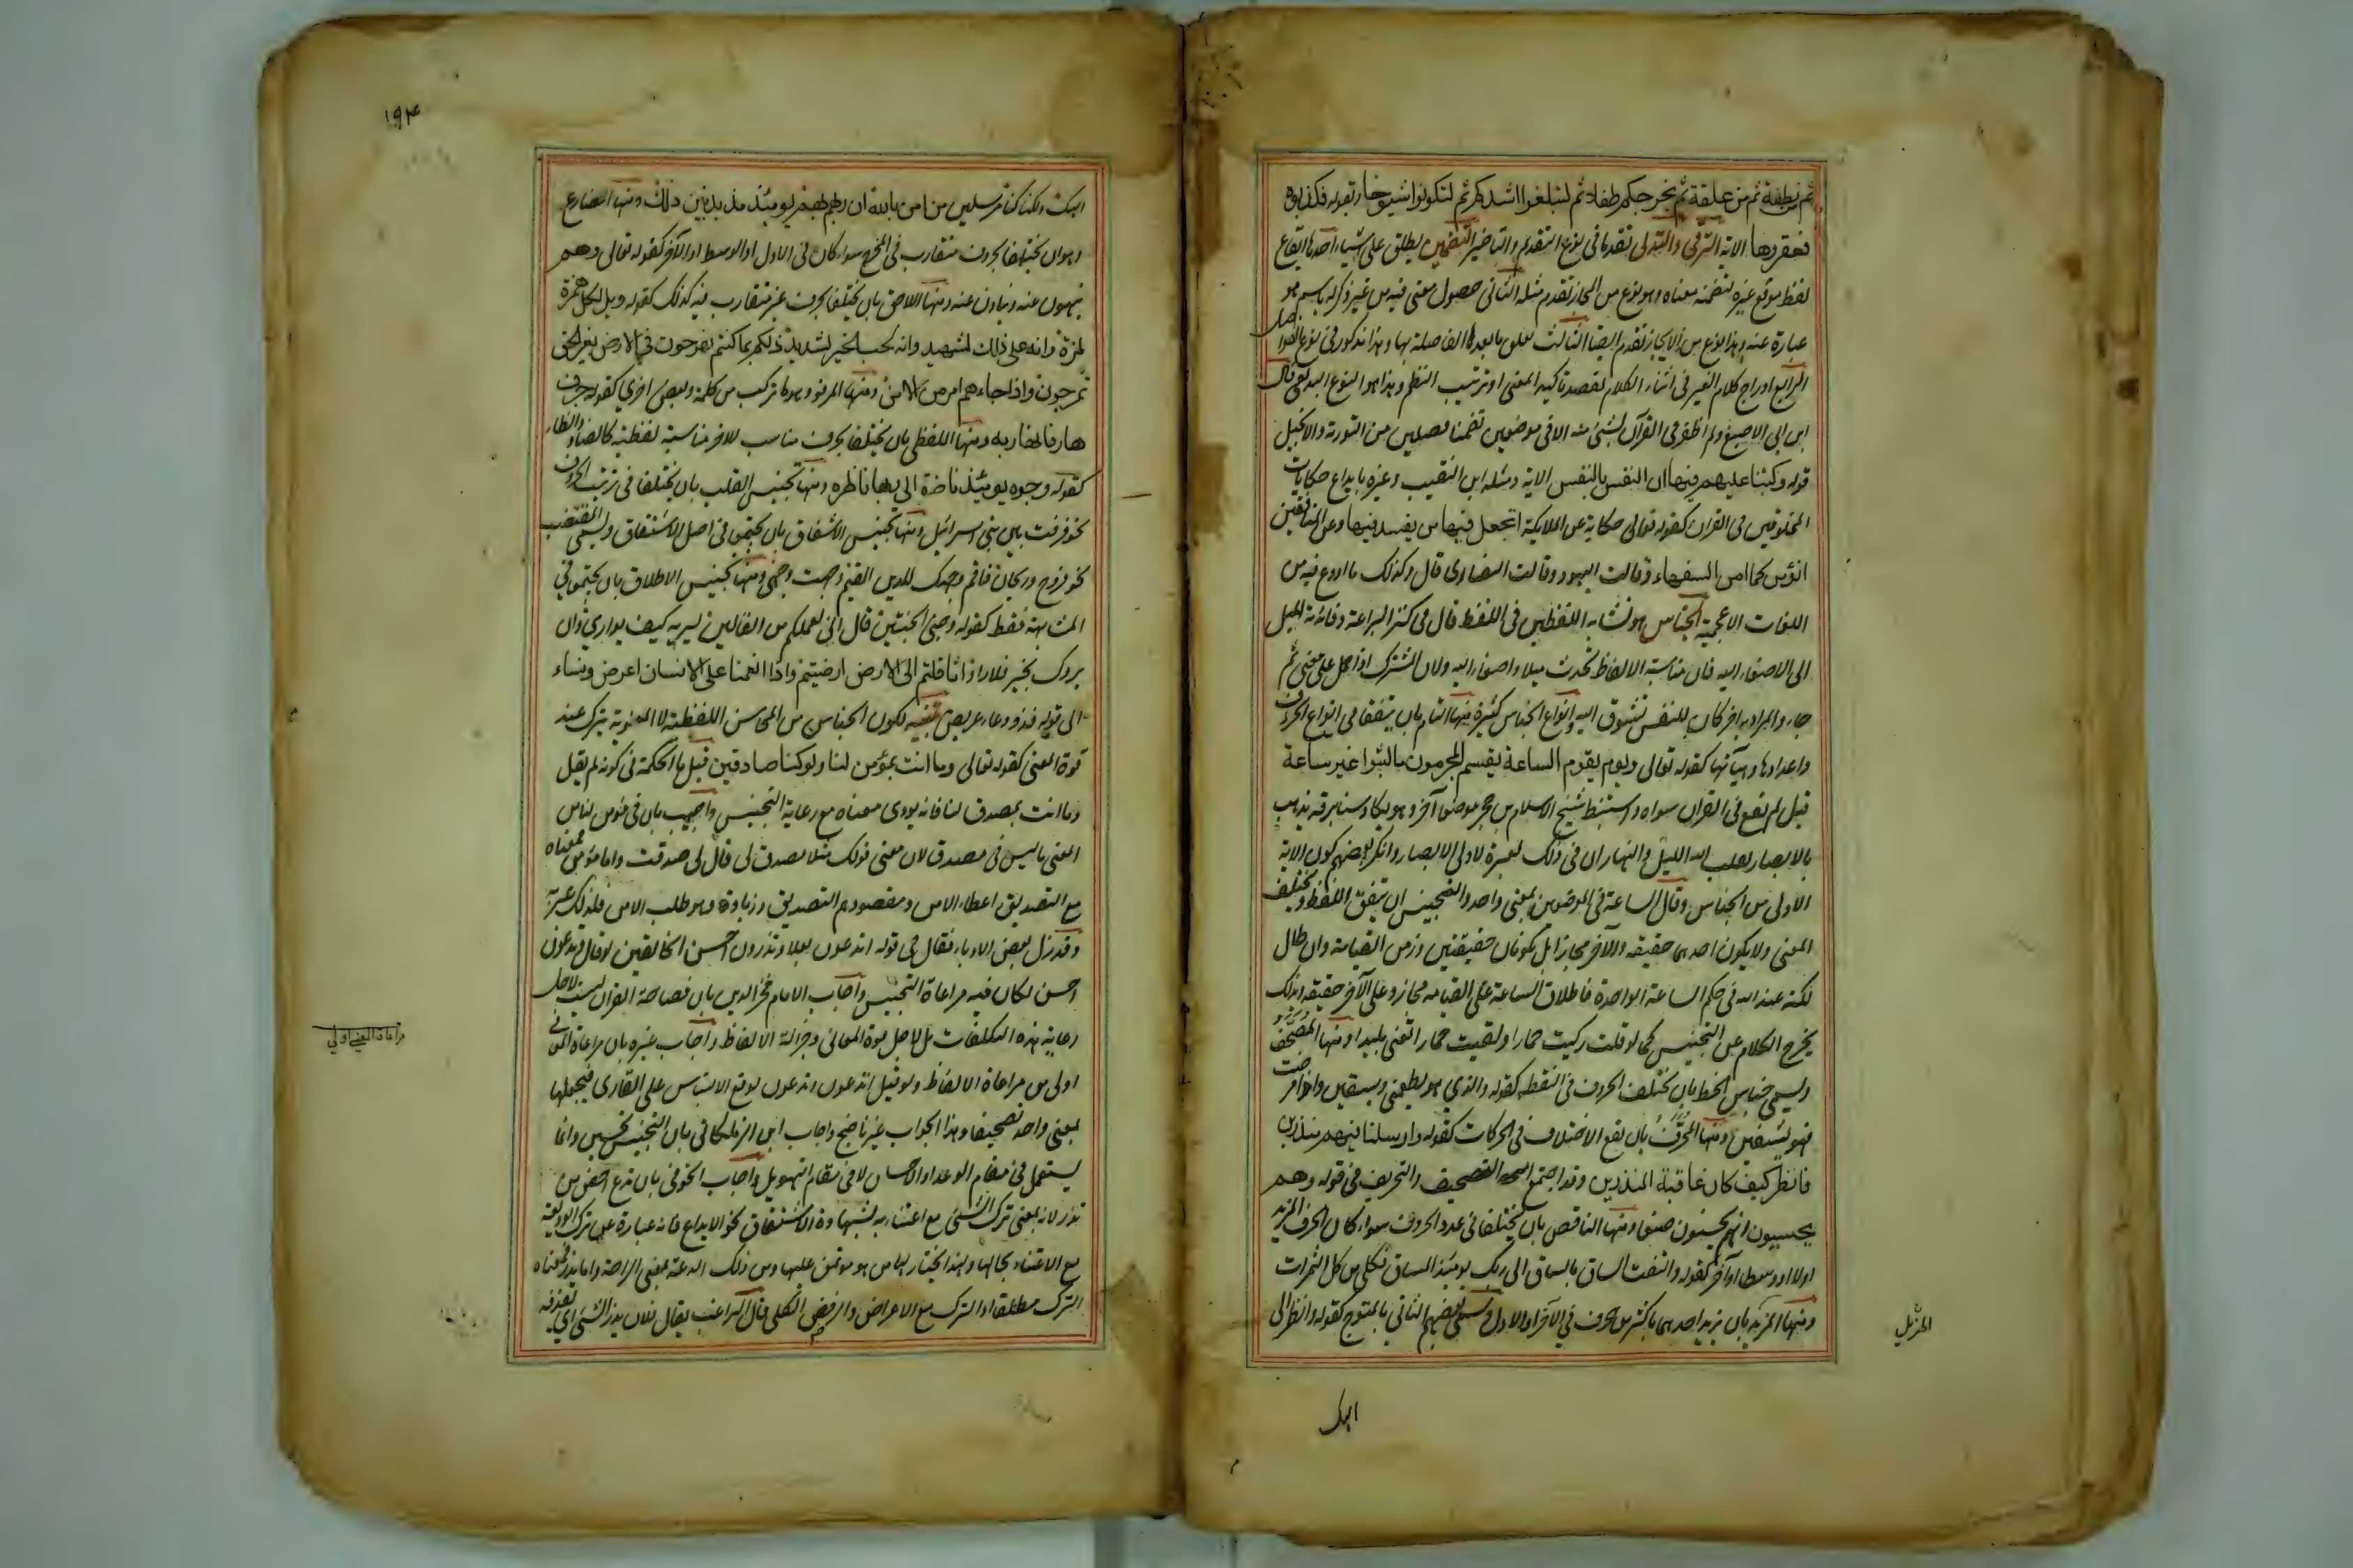 ثم من نطفة ثم من علقة ثم يخرجكم طفلا ثم لتبلغوا اشدكم ثم لتكونوا شيوخا وبقوله فكذبوه
فعقروها الاية الترقي والتدلي تقدما في نوع التقديم والتاخير التضمين يطلق على اشياء احدها ايقاع
لفظ موقع غيره لتضمنه معناه وهو نوع من المجاز تقدم مثله الثاني حصول معنى فيه من غير ذكر له باسم هو
عبارة عنه وهذا نوع من الايجاز تقدم ايضا الثالث تعلق ما بعد الفاصلة بها وهذا مذكور في نوع الفواصل
الرابع ادراج كلام الغير في اثناء الكلام لقصد تاكيد المعنى او ترتيب النظم وهذا هو النوع البديعي قال
ابن ابي الاصبع ولم اظفر في القرآن بشئ منه الا في موضعين تضمنا فصلين من التورية والانجيل
قوله وكتبنا عليهم فيها ان النفس بالنفس الاية ومثله ابن النقيب وغيره بايداع حكايات
المخلوقين في القرآن كقوله تعالى حكاية عن الملايكة اتجعل فيها من يفسد فيها وعن المنافقين
انؤمن كما امن السفهاء وقالت اليهود وقالت النصارى قال وكذلك ما اودع فيه من
اللغات الاعجمية الجناس هو تشابه اللفظين في اللفظ قال في كنز البراعة وفائدته الميل
الى الاصغاء اليه فان مناسبة الالفاظ تحدث ميلا واصغاء اليه ولان المشترك اذا حمل على معنى ثم
جاء والمراد به اخر كان للنفس تشوق اليه وانواع الجناس كثيرة منها التام بان يتفقا في انواع الحروف
واعدادها وهيآتها كقوله تعالى ويوم يقوم الساعة يقسم المجرمون ما لبثوا غير ساعة
قيل لم يقع في القرآن سواه واستنبط شيخ الاسلام بن حجر موضعا آخر وهو يكاد سنا برقه يذهب
بالابصار يقلب الله الليل والنهار ان في ذلك لعبرة لاولي الابصار وانكر بعضهم كون الاية
الاولى من الجناس وقال الساعة في الموضعين بمعنى واحد والتجنيس ان يتفق اللفظ ويختلف
المعنى ولا يكون احدهما حقيقه والآخر مجازا بل يكونان حقيقتين وزمن القيامة وان طال
لكنه عند الله في حكم الساعة الواحدة فاطلاق الساعة على القيامه مجاز وعلى الآخر حقيقه وبذلك
يخرج الكلام عن التجنيس كما لو قلت ركبت حمارا ولقيت حمارا تعنى بليدا ومنها المصحف
ويسمى جناس الخط بان تختلف الحروف في النقط كقوله والذي هو يطعمني ويسقين واذا مرضت
فهو يشفين ومنها المحرف بان يقع الاختلاف في الحركات كقوله وارسلنا فيهم منذرين
فانظر كيف كان عاقبة المنذرين وقد اجتمع التصحيف والتحريف في قوله وهم
يحسبون انهم يحسنون صنعا ومنها الناقص بان يختلفا في عدد الحروف سواء كان الحرف المزيد
اولا او وسطا او آخرا كقوله والتفت الساق بالساق الى ربك يومئذ المساق كلي من كل الثمرات
ومنها المزيد بان يزيد احدهما باكثر من حرف في الآخر او الاول وسمى بعضهم الثاني بالمتوج كقوله وانظر الى
المذيل
الهك
١٩٤
الهك ولكنا كنا مرسلين من امن بالله ان ربهم بهم يومئذ مذبذبين بين ذلك ومنها المضارع
وهو ان يختلفا بحرف متقارب في المخرج سواء كان في الاول او الوسط او الآخر كقوله تعالى وهم
ينهون عنه وينأون عنه ومنها اللاحق بان يختلفا بحرف غير متقارب فيه كذلك كقوله ويل لكل همزة
لمزة وانه على ذلك لشهيد وانه لحب الخير لشديد ذلكم بما كنتم تفرحون في الارض بغير الحق
تمرحون واذا جاءهم امر من الامن ومنها المرفو وهو ما تركب من كلمة وبعض اخرى كقوله جرف
هار فانهار به ومنها اللفظي بان يختلفا بحرف مناسب للاخر مناسبة لفظية كالضاد والظاء
كقوله وجوه يومئذ ناضرة الى ربها ناظره ومنها تجنيس القلب بان يختلفا في ترتيب الحروف
نحو فرقت بين بني اسرائيل ومنها تجنيس الاشتقاق بان يجتمعا في اصل الاشتقاق ويسمى المقتضب
نحو فروح وريحان فاقم وجهك للدين القيم وجهت وجهي ومنها تجنيس الاطلاق بان يجتمعا في
المشابهة فقط كقوله وجنى الجنتين قال انى لعملكم من القالين ليريه كيف يواري وان
يردك بخير فلا راد اثاقلتم الى الارض ارضيتم واذا انعمنا على الانسان اعرض ونـاء
الى قوله فذو دعاء عريض تنبيه لكون الجناس من المحاسن اللفظية لا المعنوية يترك عند
قوة المعنى كقوله تعالى وما انت بمؤمن لنا ولو كنا صادقين قيل ما الحكمة في كونه لم يقل
وما انت بمصدق لنا فانه يودى معناه مع رعاية التجنيس واجيب بان في مؤمن لنا من
المعنى ما ليس في مصدق لان معنى قولك مثلا مصدق لى قال لى صدقت واما مؤمن فمعناه
مع التصديق اعطاء الامن ومقصودهم التصديق وزيادة وهو طلب الامن فلذلك عبر به
وقد زل بعض الادباء فقال في قوله اتدعون بعلا وتذرون احسن الخالقين لو قال وتدعون
احسن لكان فيه مراعاة التجنيس واجاب الامام فخر الدين بان فصاحة القرآن ليست لاجل
رعاية هذه التكلفات بل لاجل قوة المعاني وجزالة الالفاظ واجاب غيره بان مراعاة المعاني
اولى من مراعاة الالفاظ ولو قيل اتدعون اتدعون لوقع الالتباس على القارى فيجعلها
بمعنى واحد تصحيفا وهذا الجواب غير ناضج واجاب ابن الزملكاني بان التجنيس تحسين وانما
يستعمل في مقام الوعد او الاحسان لا في مقام التهويل واجاب الخوفي بان تدع اخص من
تذر لانه بمعنى ترك الشئ مع اعتنائه بشهادة الاشتقاق نحو الايداع فانه عبارة عن ترك الوديعة
مع الاعتناء بحالها ولهذا يختار لها من هو مؤتمن عليها ومن ذلك الدعة بمعنى الراحة واما يذر فمعناه
الترك مطلقا او الترك مع الاعراض والرفض الكلي قال الراغب يقال فلان يذر الشئ اي يقذفه
مراعاة المعنى اولى